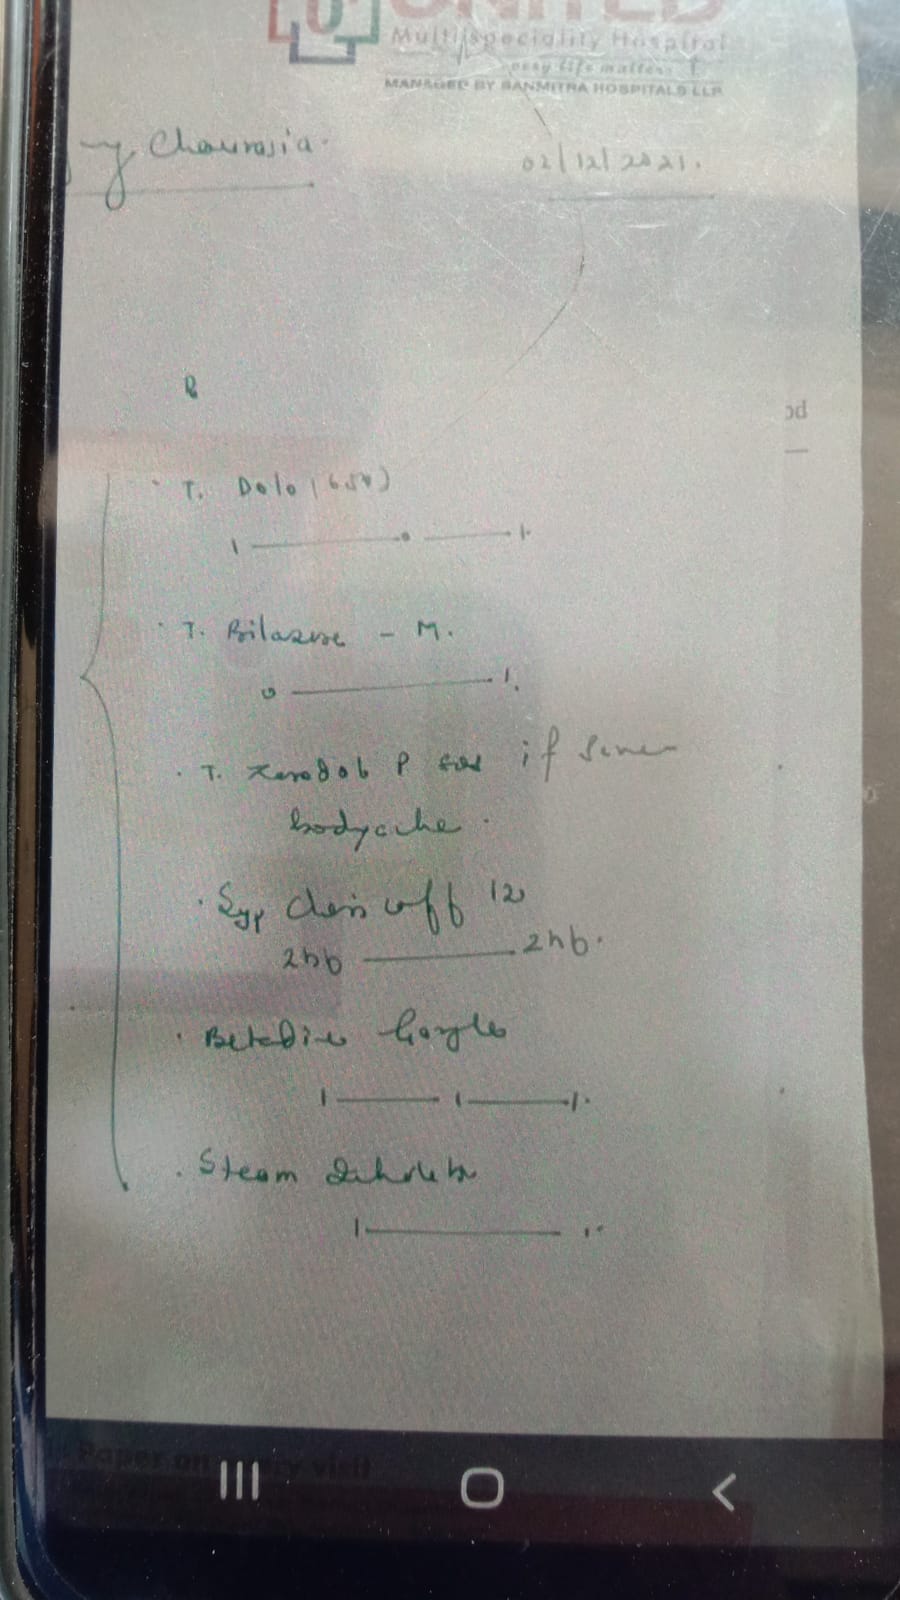 UNITED
Multispeciality Hospital
every life matters
MANAGED BY SANMITRA HOSPITALS LLP
Chaurasia.
02/12/2021.
R
od
T. Dolo (650)
1 — 0 — 1.
T. Bilazure - M.
0 — 1.
T. Zerodol P sos if
bodyache.
Syp
2hb — 2hb.
Betadine Gargles
1 — 1 — 1.
Steam
1 — 1.
Paper on every visit